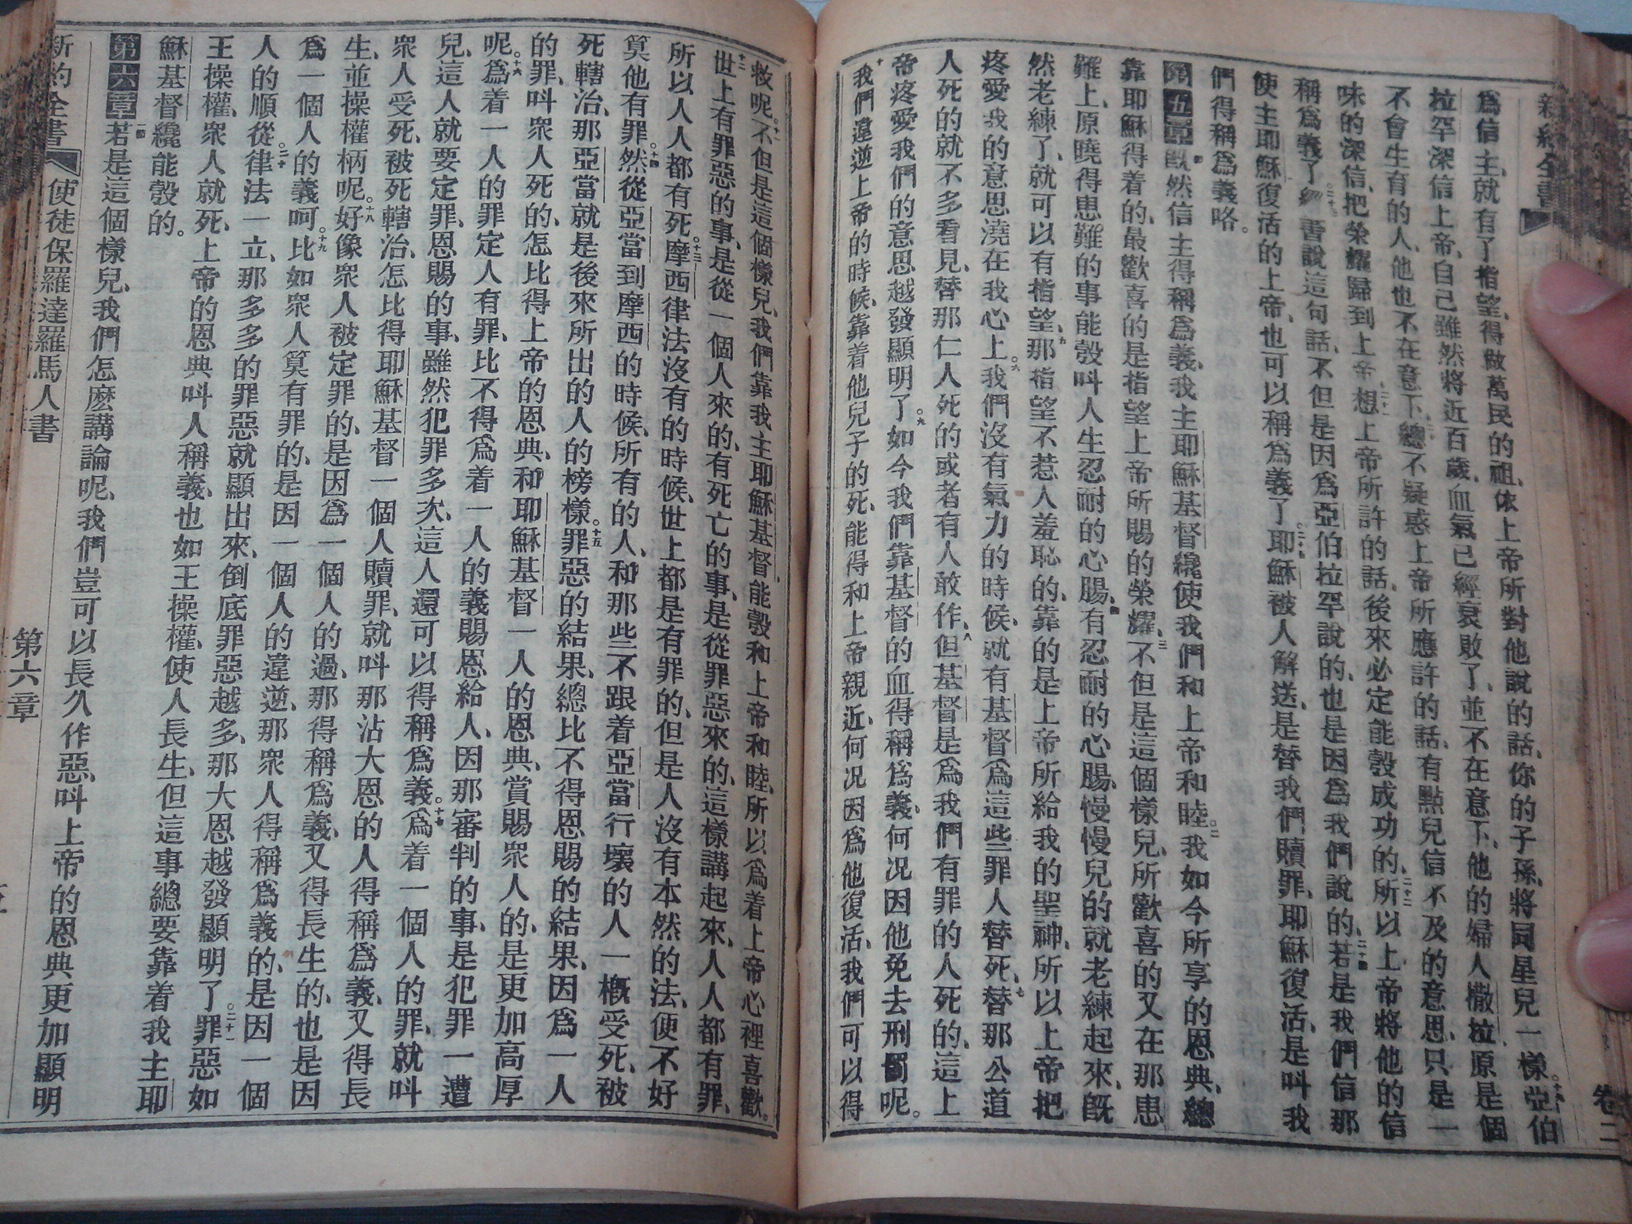 新約全書
爲信主、就有了指望、得做萬民的祖、依上帝所對他說的話、你的子孫、將同星兒一樣。亞伯
拉罕深信上帝、自己雖然將近百歲、血氣已經衰敗了、並不在意下、他的婦人撒拉原是個
不會生育的人、他也不在意下、總不疑惑上帝所應許的話、有點兒信不及的意思、只是一
味的深信、把榮耀歸到上帝、想上帝所許的話、後來必定能彀成功的、所以上帝將他的信
稱爲義了。書說這句話、不但是因爲亞伯拉罕說的、也是因爲我們說的、若是我們信那
使主耶穌復活的上帝、也可以稱爲義了。耶穌被人解送、是替我們贖罪、耶穌復活、是叫我
們得稱爲義咯。
第五章 旣然信主得稱爲義、我主耶穌基督纔使我們和上帝和睦。二我如今所享的恩典、總
靠耶穌得着的、最歡喜的是指望上帝所賜的榮耀、三不但是這個樣兒、所歡喜的又在那患
難上、原曉得患難的事、能彀叫人生忍耐的心腸、有忍耐的心腸、慢慢兒的就老練起來、旣
然老練了、就可以有指望、五那指望不惹人羞恥的、靠的是上帝所給我的聖神、所以上帝把
疼愛我的意思澆在我心上。六我們沒有氣力的時候、就有基督爲這些罪人替死、七替那公道
人死的就不多看見、替那仁人死的或者有人敢作、八但基督是爲我們有罪的人死的、這上
帝疼愛我們的意思越發顯明了。九如今我們靠基督的血得稱爲義、何况因他免去刑罰呢。
十我們違逆上帝的時候、靠着他兒子的死、能得和上帝親近、何况因爲他復活、我們可以得
卷二
救呢。十一不但是這個樣兒、我們靠我主耶穌基督、能彀和上帝和睦、所以爲着上帝心裡喜歡。
十二世上有罪惡的事、是從一個人來的、有死亡的事、是從罪惡來的、這樣講起來、人人都有罪、
所以人人都有死、十三摩西律法沒有的時候、世上都是有罪的、但是人沒有本然的法、便不好
算他有罪。十四然從亞當到摩西的時候、所有的人、和那些不跟着亞當行壞的人、一概受死、被
死轄治、那亞當就是後來所出的人的榜樣。十五罪惡的結果、總比不得恩賜的結果、因爲一人
的罪、叫衆人死的、怎比得上帝的恩典、和耶穌基督一人的恩典、賞賜衆人的、是更加高厚
呢。十六爲着一個人的罪定人有罪、比不得爲着一人的義賜恩給人、因那審判的事、是犯罪一遭
兒、這人就要定罪、恩賜的事、雖然犯罪多次、這人還可以得稱爲義。十七爲着一個人的罪、就叫
衆人受死、被死轄治、怎比得耶穌基督一個人贖罪、就叫那沾大恩的人、得稱爲義、又得長
生、並操權柄呢。十八好像衆人被定罪的、是因爲一個人的過、那得稱爲義、又得長生的、也是因
爲一個人的義呵。十九比如衆人算有罪的、是因一個人的違逆、那衆人得稱爲義的、是因一個
人的順從。二十律法一立、那多多的罪惡就顯出來、倒底罪惡越多、那大恩越發顯明了。二十一罪惡如
王操權、衆人就死、上帝的恩典叫人稱義、也如王操權、使人長生、但這事總要靠着我主耶
穌基督纔能彀的。
第六章 一若是這個樣兒、我們怎麽講論呢、我們豈可以長久作惡、叫上帝的恩典更加顯明
新約全書 使徒保羅達羅馬人書 第六章